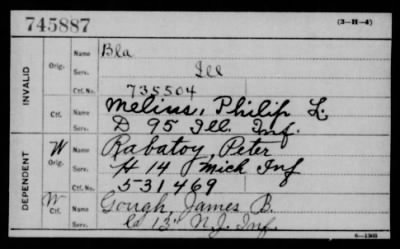 745887
(3-H-4)
INVALID
Orig.
Name Bla
Serv. Ill
Ctf. No. 735504
Ctf.
Name Melius, Philip L.
Serv. D 95 Ill. Inf.
DEPENDENT
W Orig.
Name Rabatoy, Peter
Serv. H 14 Mich Inf
Ctf. No. 531469
W Ctf.
Name Gough, James B.
Serv. Co 13" N.J. Inf.